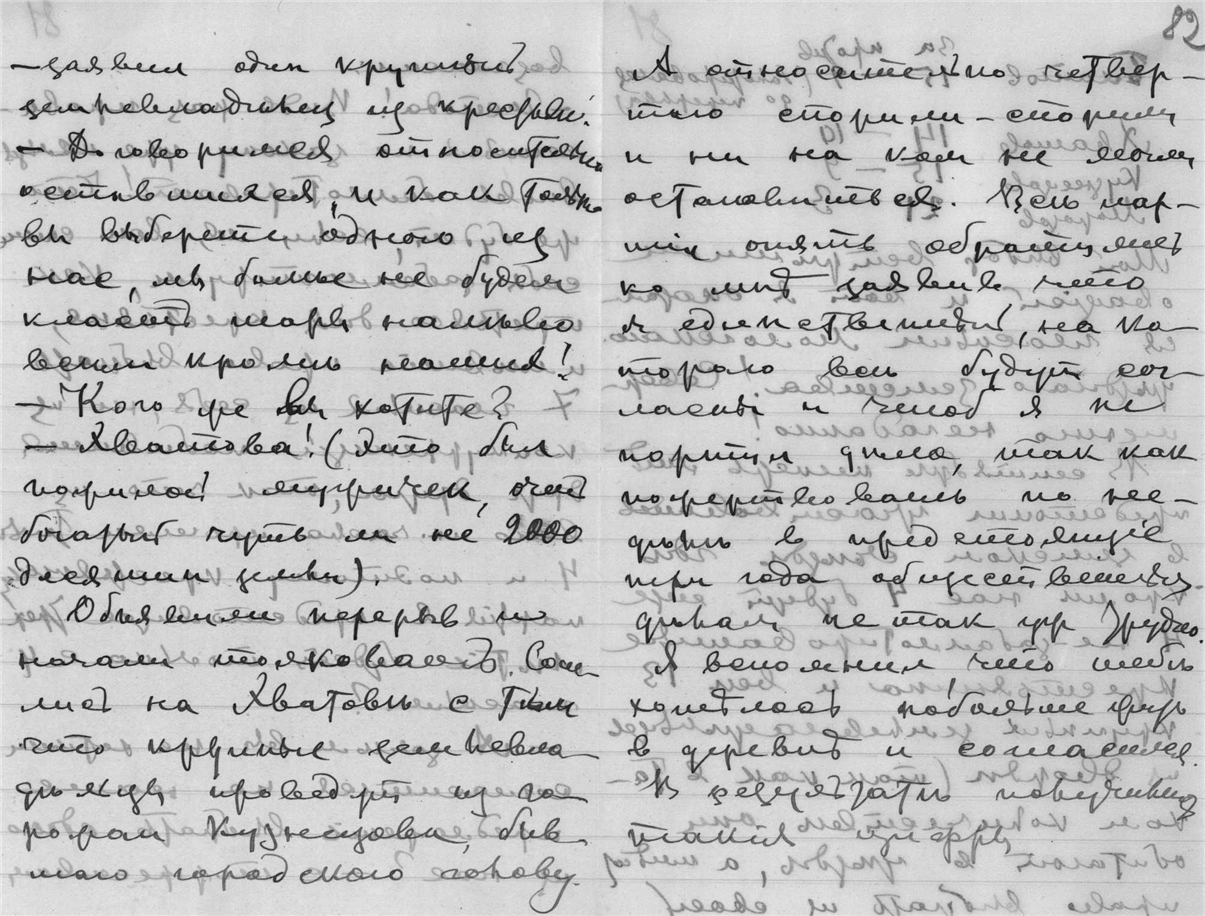 — заявил один крупный
землевладелец из крестьян.
— Договоримся относительно
оставшихся, и как только
вы выберете одного из
нас, мы больше не будем
класть шары налево
всем кроме нашия!
— Кого же вы хотите?
— Хватова! (Это был
пожилой мужичек, очень
богатый чуть ли не 2000
десятин земли).
Объявили перерыв и
начали толковать. Сош-
лись на Хватове с тем
что крупные землевла-
дельцы проведут из го-
рожан Кузнецова, быв
шаго городского голову.
82
А относительно четвер-
таго спорили-спорили
и ни на ком не могли
остановиться. Все пар-
тии опять обратились
ко мне заявив, что
я единственный, на ко-
тораго все будут сог-
ласны и чтоб я не
портил дела, так как
пожертвовать по не-
делю в предстоящие
три года общественным
делам не так уж трудно.
Я вспомнил что тебе
хотелось побольше жить
в деревне и согласился.
В результате получились
такия цифры